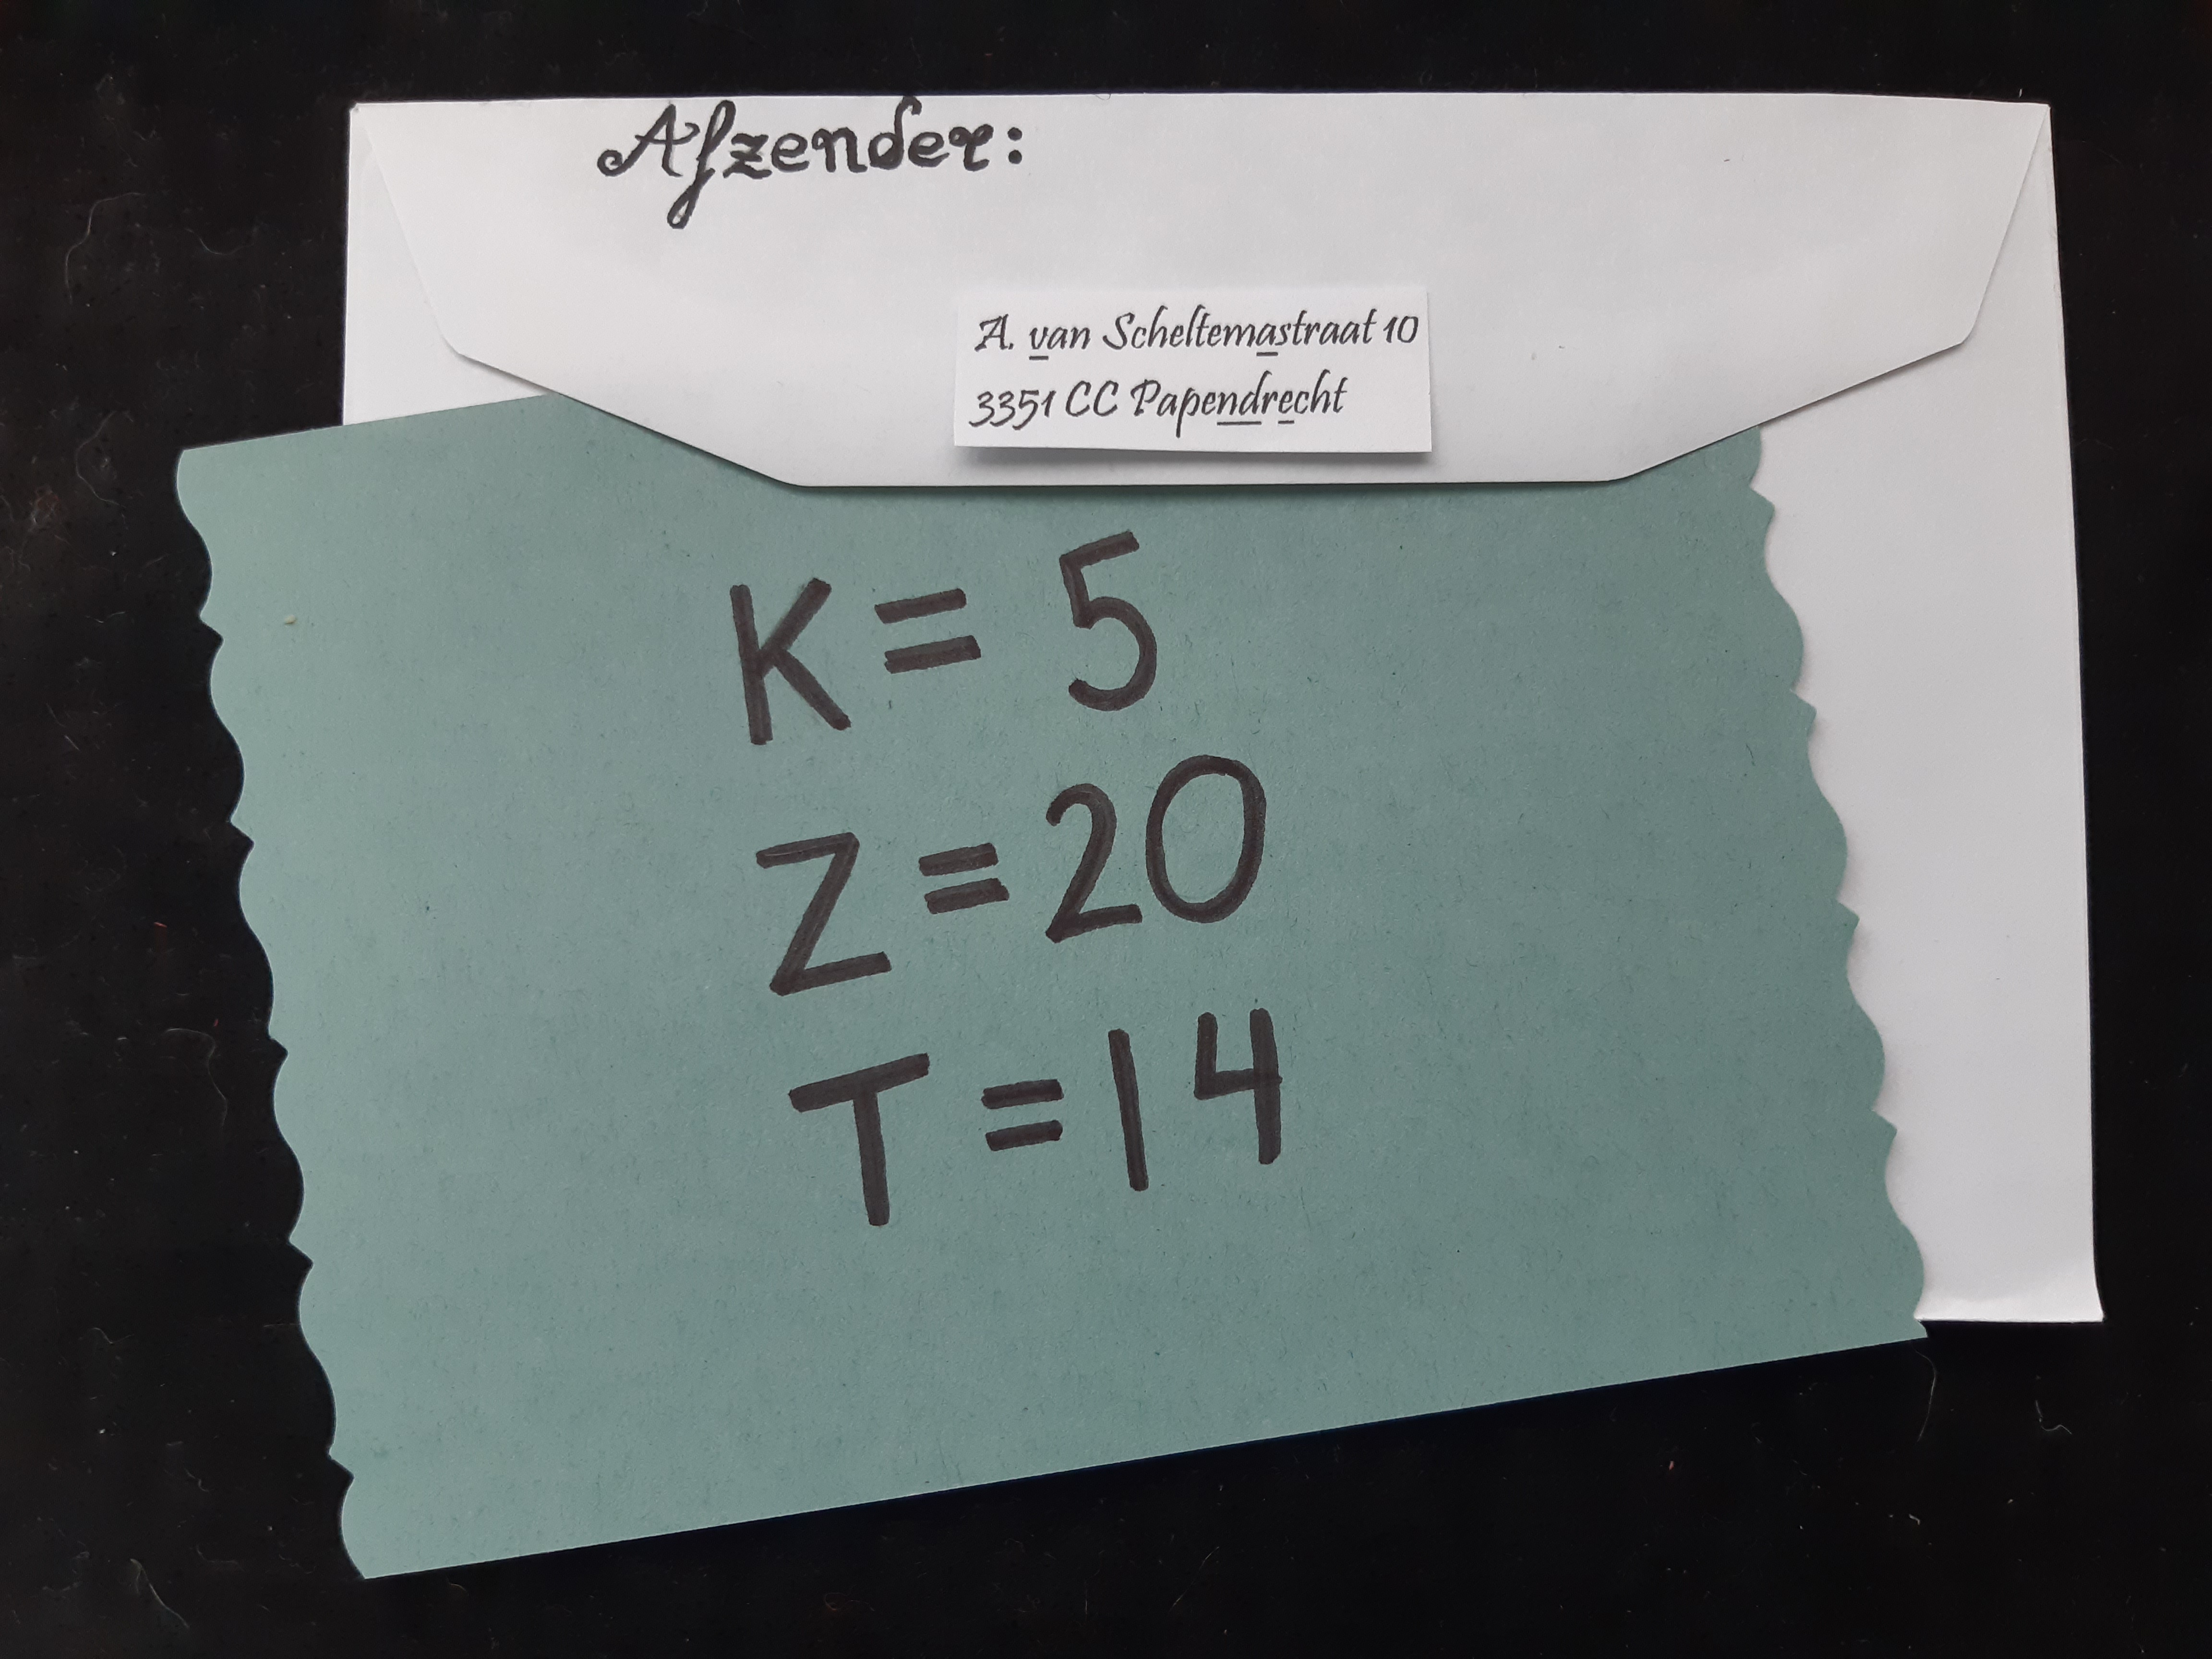 Afzender:
A. van Scheltemastraat 10
3351 CC Papendrecht
K = 5
Z = 20
T = 14